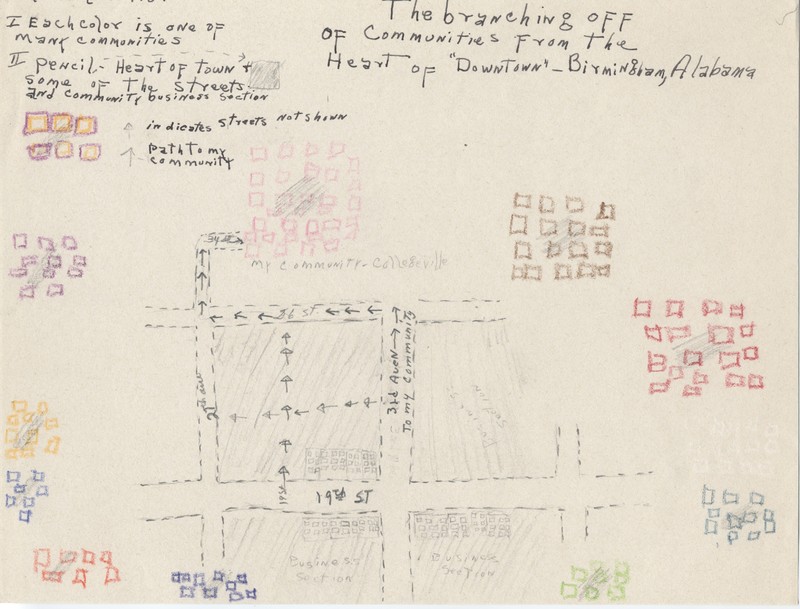 The branching off
of Communities From the
Heart of "Downtown" - Birmingham, Alabama
I Each color is one of
many communities
II pencil - Heart of town +
some of the streets
and community business section
indicates streets not shown
path to my
community
my community - Collegeville
26 ST
3rd Aven → To my Community
Business
Section
19th ST
Business
Section
Business
Section